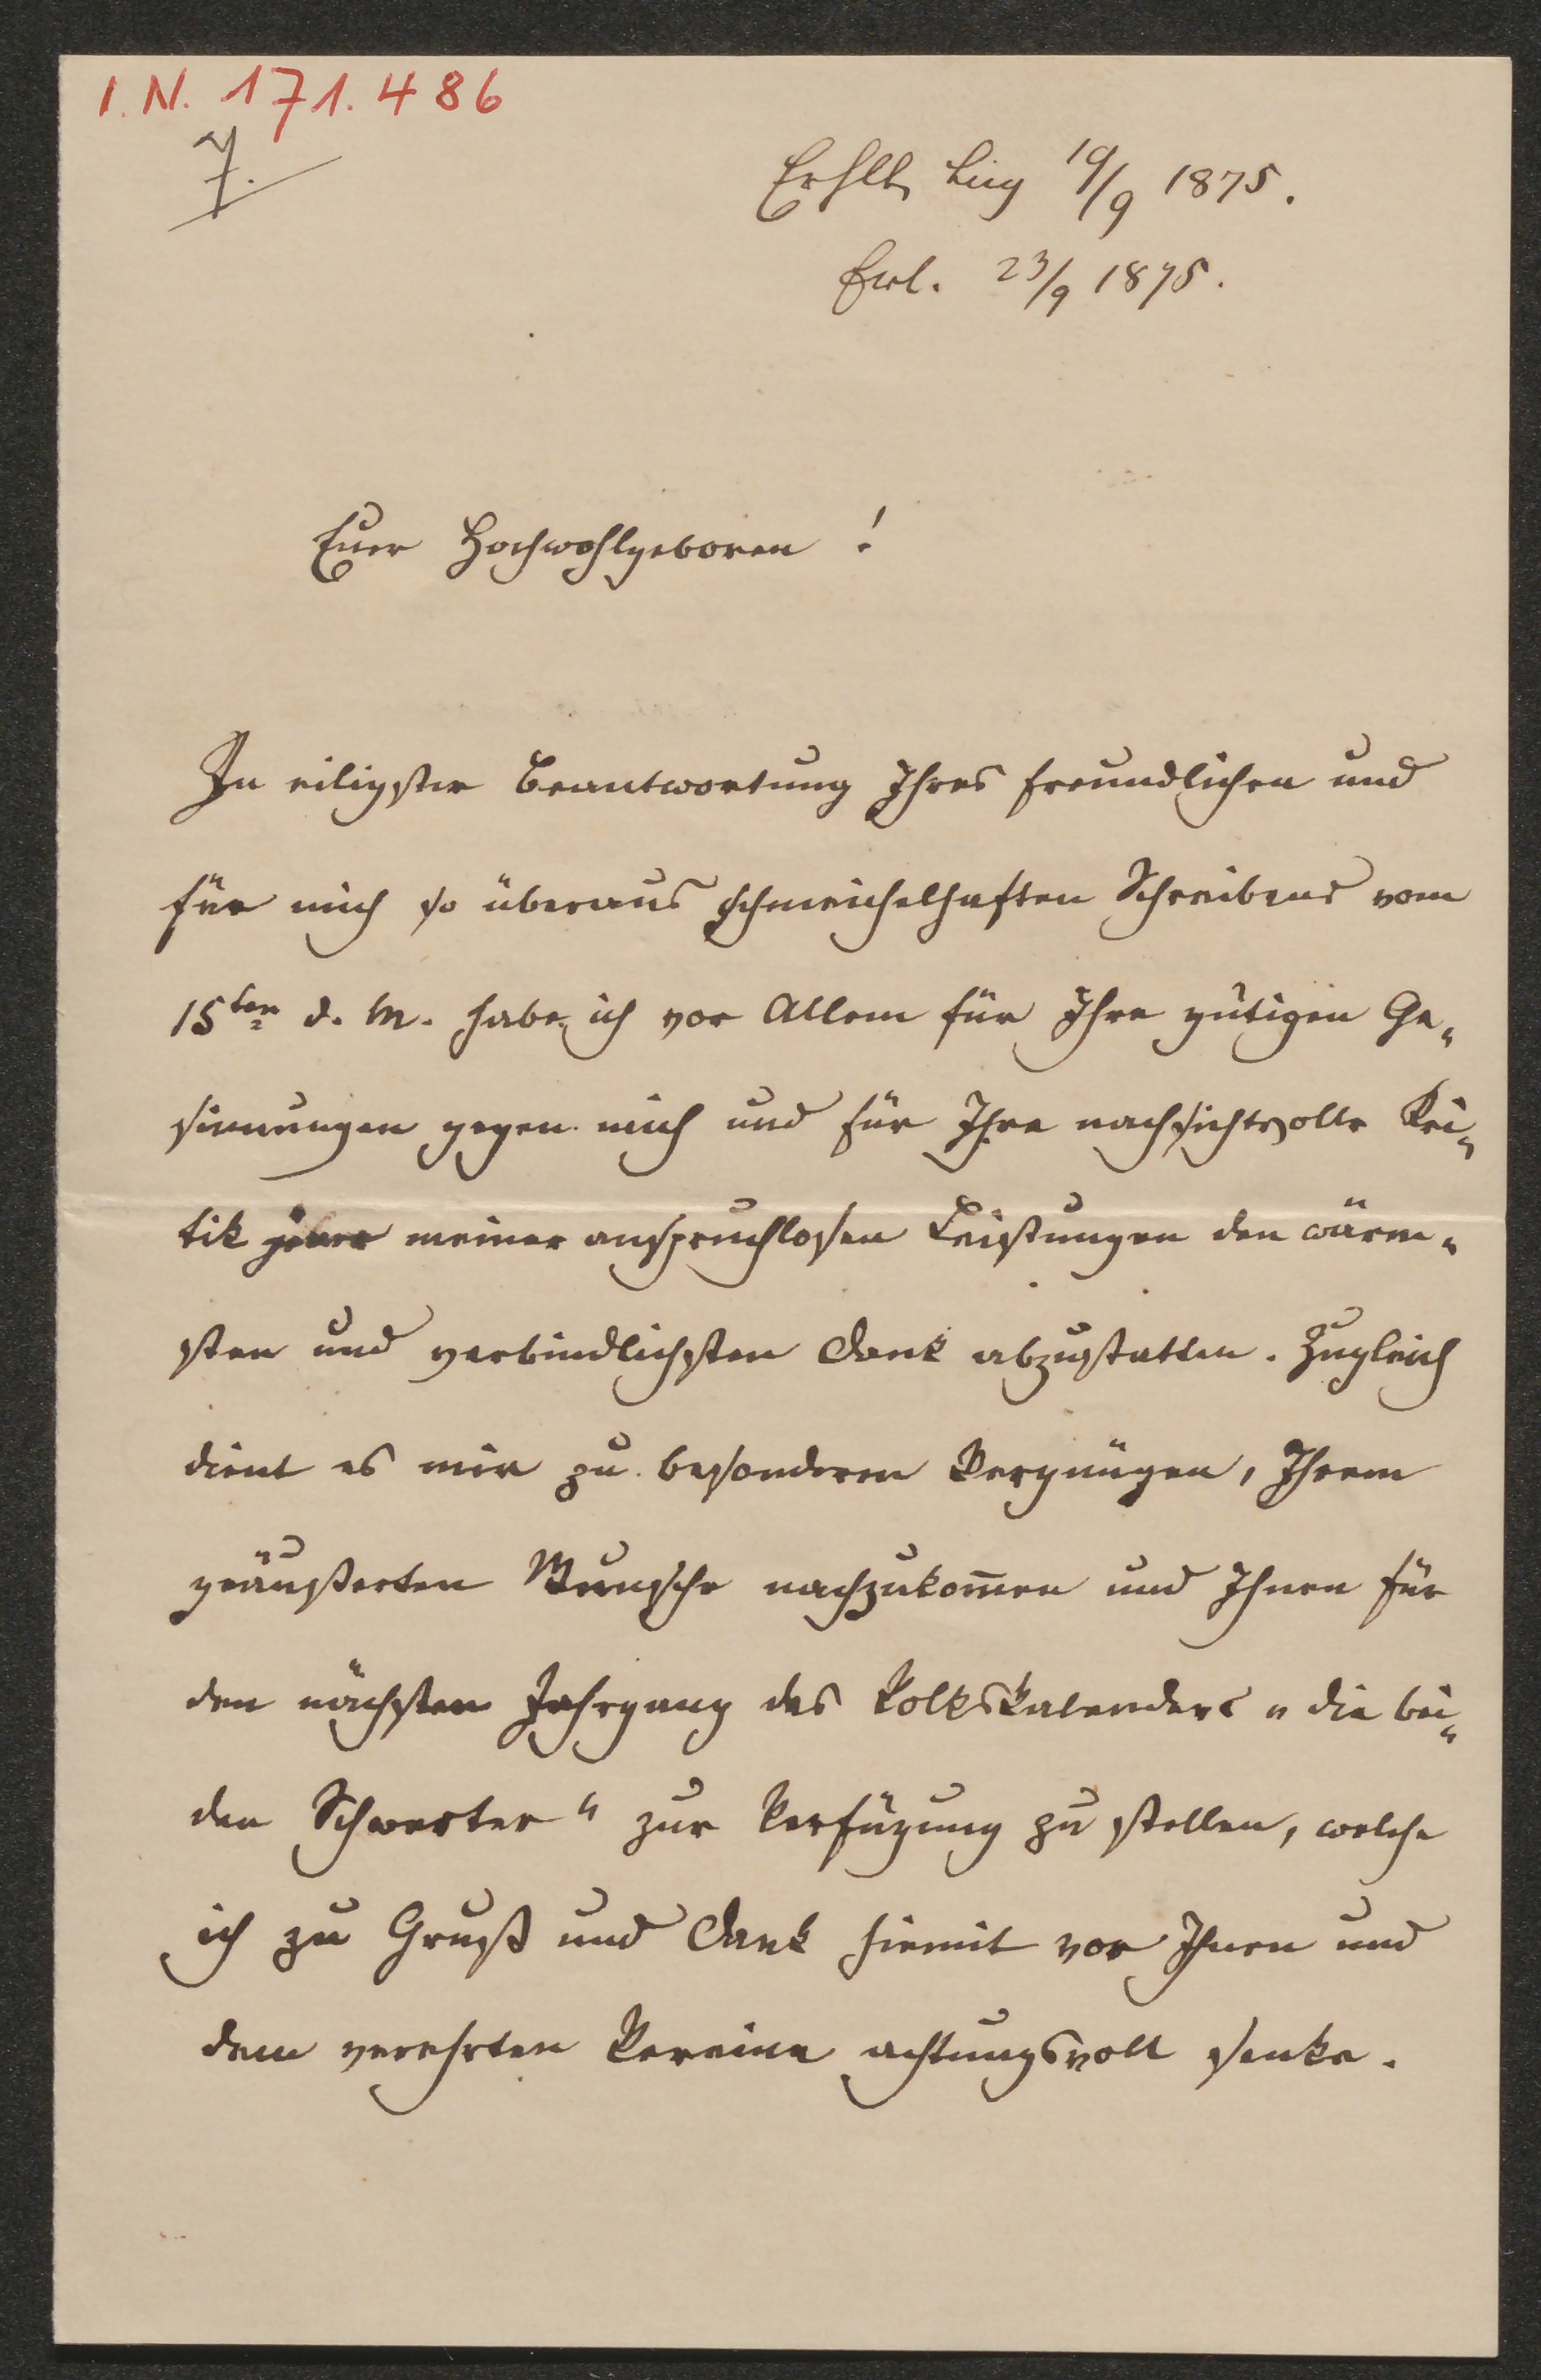 I. N. 171.486
7.
Linz 19/9 1875.
Erl. 23/9 1875.
Euer Hochwohlgeboren!
In eiligster Beantwortung Ihres freundlichen und
für mich so überaus schmeichelhaften Schreibens vom
15ten d. M. habe ich vor Allem für Ihre gütigen Ge„
sinnungen gegen mich und für Ihre nachsichtsvolle Kri„
tik meiner anspruchlosen Leistungen den wärm„
sten und verbindlichsten Dank abzustatten. Zugleich
dient es mir zu besonderem Vergnügen, Ihrem
geäußerten Wunsche nachzukom̅en und Ihnen für
den nächsten Jahrgang des Volkskalenders „die bei„
den Schwerter“ zur Verfügung zu stellen, welche
ich zu Gruß und Dank hiemit vor Ihnen und
dem verehrten Vereine achtungsvoll senke.